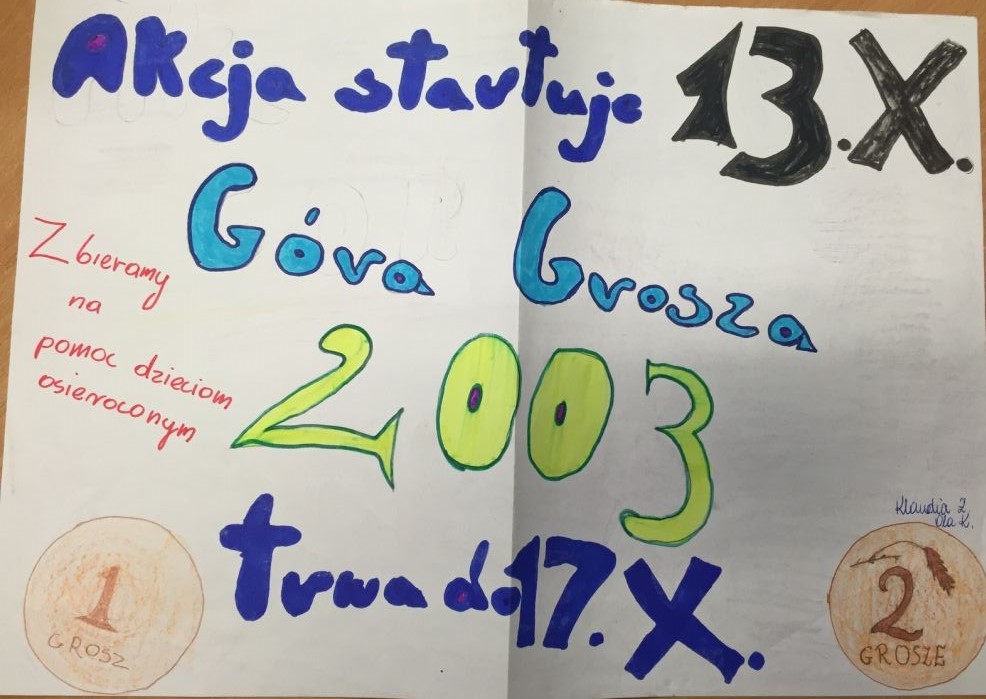 Akcja startuje 13.X.
Góra Grosza
Zbieramy
na
pomoc dzieciom
osieroconym
2003
trwa do 17.X.
Klaudia Z.
1
GROSZ
2
GROSZE